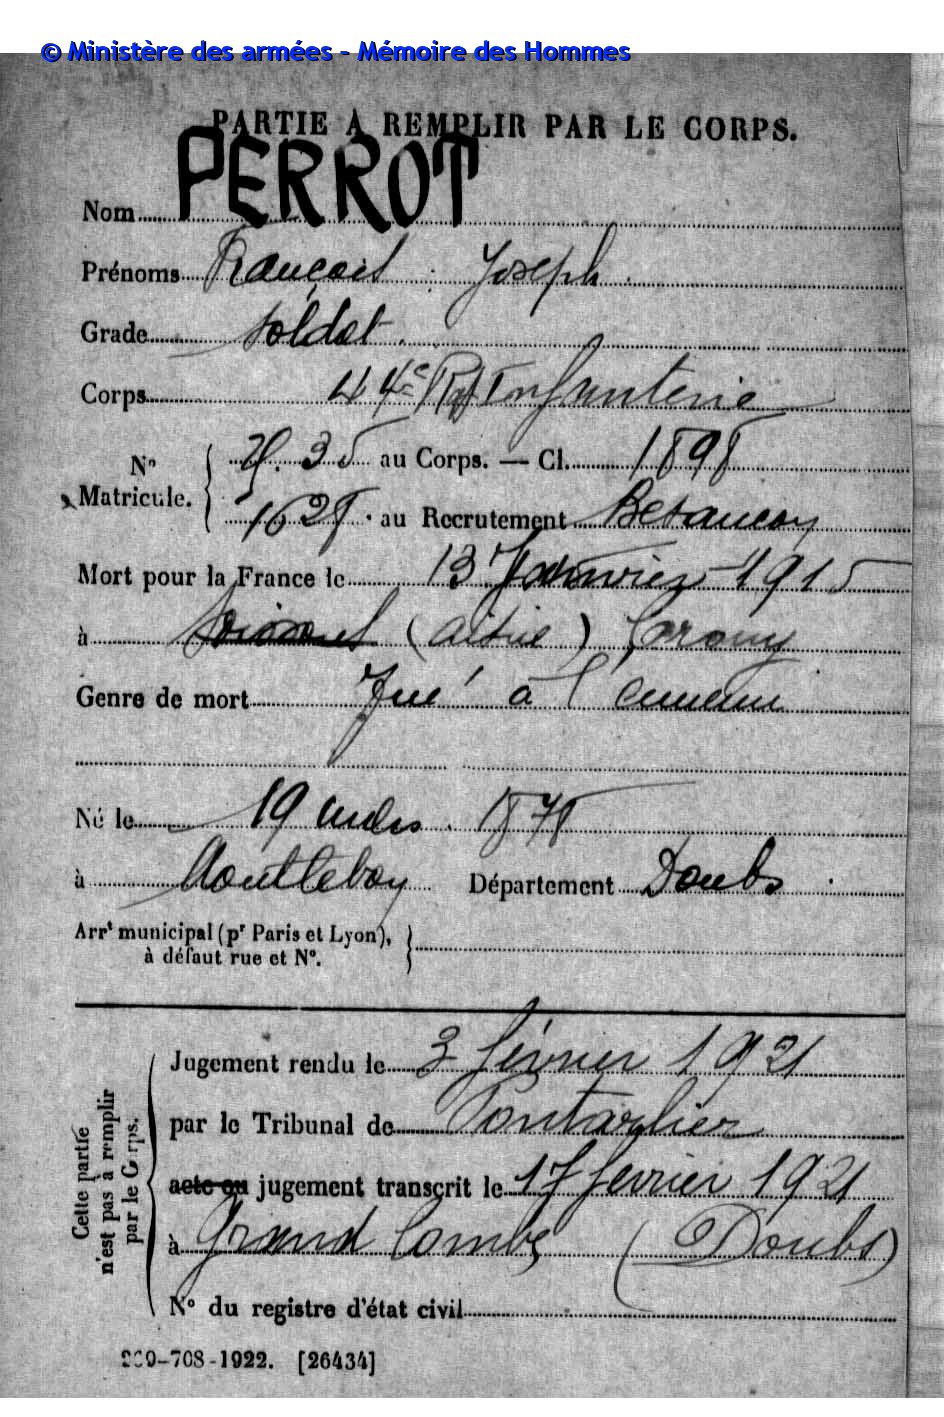 © Ministère des armées - Mémoire des Hommes
PARTIE A REMPLIR PAR LE CORPS.
Nom PERROT
Prénoms François Joseph
Grade soldat
Corps 44e Rgt Infanterie
No Matricule. 35 au Corps. — Cl. 1898
1628 au Recrutement Besançon
Mort pour la France le 13 Janvier 1915
à (Aisne) Crouy
Genre de mort Tué à l'ennemi
Né le 19 mars 1878
à Montlebon Département Doubs
Arrt municipal (pr Paris et Lyon),
à défaut rue et No.
Cette partie
n'est pas à remplir
par le Corps.
Jugement rendu le 3 février 1921
par le Tribunal de Pontarlier
acte ou jugement transcrit le 17 fevrier 1921
à Grand Combe (Doubs)
No du registre d'état civil
-708-1922. [26434]